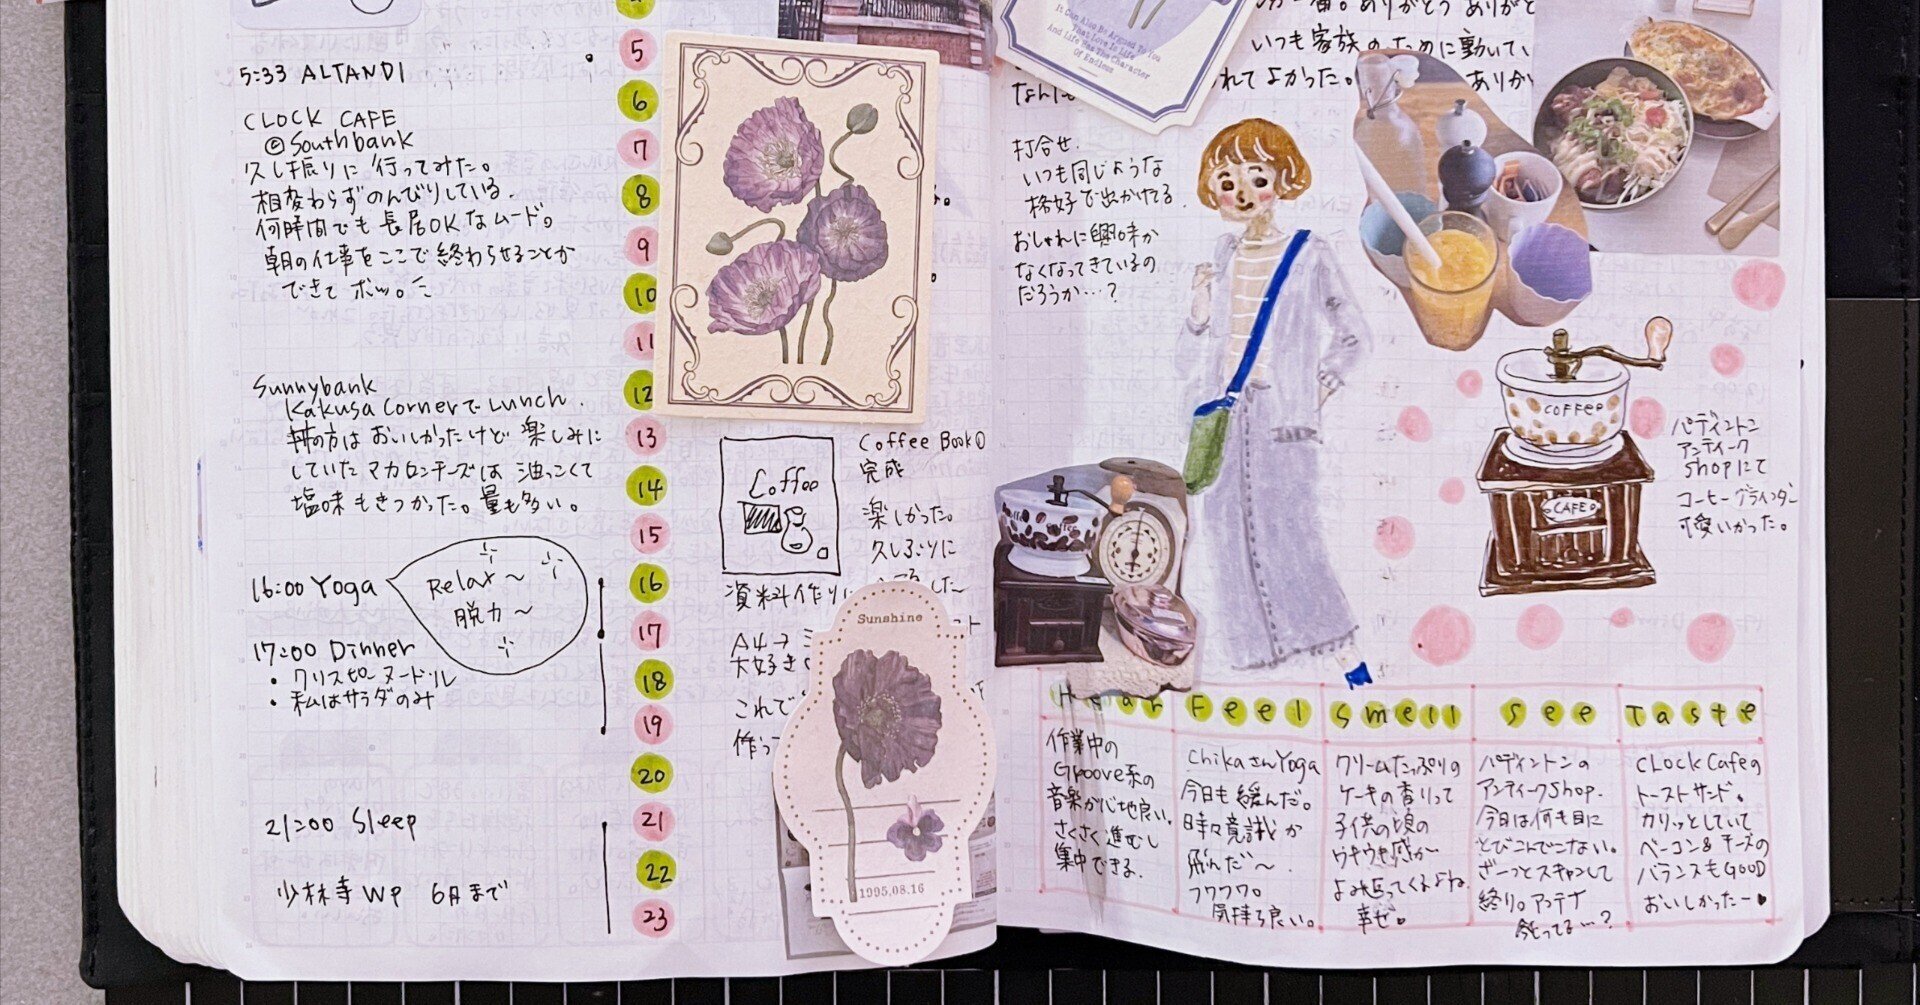 5:33 ALTANDI
CLOCK CAFE
@Southbank
久し振りに行ってみた。
相変わらずのんびりしている。
何時間でも長居OKなムード。
朝の仕事をここで終わらせることが
できてホッ。
Sunnybank
Kakusa Cornerで Lunch.
丼の方はおいしかったけど楽しみに
していたマカロンチーズは油っこくて
塩味もきつかった。量も多い。
16:00 Yoga
Relax〜
脱力〜
17:00 Dinner
・クリスピーヌードル
・私はサラダのみ
21:00 Sleep
少林寺WP 6月まで
5
6
7
8
9
10
11
12
13
14
15
16
17
18
19
20
21
22
23
Coffee
Coffee Book
完成
楽しかった。
久しぶりに
資料作り
A4→
大好き
これで
作っ
Sunshine
1995.08.16
It Can Also Be Argued To You
That Love In Life
And Life Has The Character
Of Endless
一番。ありがとう ありがと
いつも家族のために動いて、
れてよかった。 ありが
なんた
打合せ.
いつも同じような
格好で出かけてる.
おしゃれに興味が
なくなってきているの
だろうか…?
COFFEE
CAFE
パディントン
アンティーク
shopにて
コーヒーグラインダー
可愛いかった。
Hear Feel Smell See Taste
作業中の
Groove系の
音楽が心地良い。
さくさく進むし
集中できる。
ChikaさんYoga
今日も緩んだ。
時々意識が
飛んだ〜
フワフワ。
気持ち良い。
クリームたっぷりの
ケーキの香りって
子供の頃の
ウキウキ感が
よみ返ってくるよね
幸せ。
パディントンの
アンティークshop.
今日は何も目に
とびこんでこない。
ざーっとスキャンして
終り。アンテナ
今とってる…?
CLOCK Cafeの
トーストサンド。
カリッとしていて
ベーコン&チーズの
バランスもGOOD
おいしかったー♥